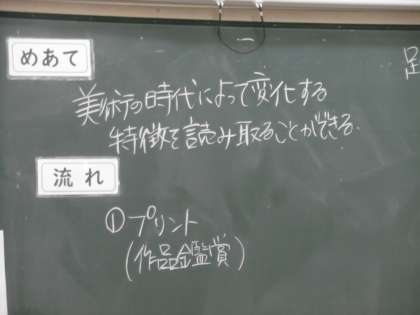 めあて
美術の時代によって変化する
特徴を読み取ることができる。
流れ
①プリント
(作品鑑賞)
足